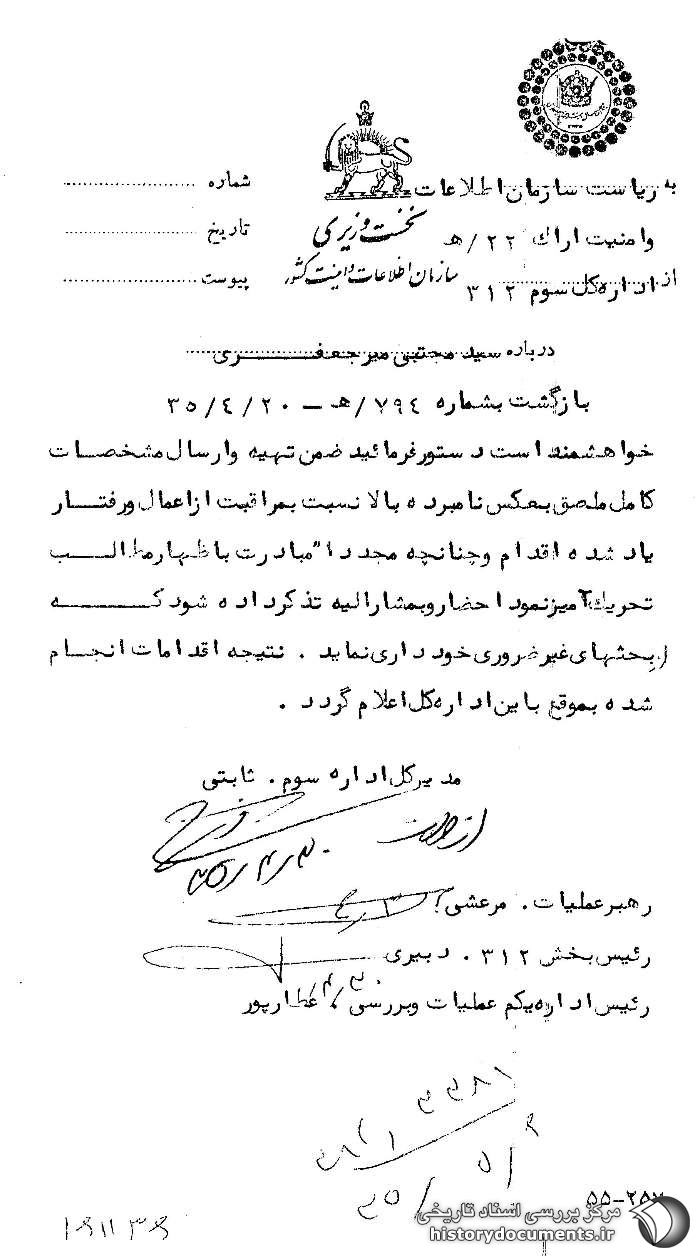 به ریاست سازمان اطلاعات
شماره
نخست وزیری
وامنیت اراک ۲۲/هـ
تاریخ
سازمان اطلاعات و امنیت کشور
از اداره کل سوم ۳۱۲
پیوست
درباره سید مجتبی میرجعفری
بازگشت بشماره ۷۹۴/هـ – ۳۵/۴/۲۰
خواهشمند است دستورفرمائید ضمن تهیه وارسال مشخصات
کامل ملصق بعکس نامبرده بالا نسبت بمراقبت ازاعمال ورفتار
یاد شده اقدام وچنانچه مجددا" مبادرت باظهارمطالب
تحریک آمیزنمود احضاروبمشارالیه تذکرداده شود که
ازبحثهای غیرضروری خود داری نماید . نتیجه اقدامات انجام
شده بموقع باین اداره کل اعلام گردد .
مدیرکل اداره سوم . ثابتی
از طرف
۳۵/۴/۳۰
رهبرعملیات . مرعشی
رئیس بخش ۳۱۲ . دبیری
۴/۳۰
رئیس اداره یکم عملیات وبررسی . عطارپور
۵۵-۲۵۷
مرکز بررسی اسناد تاریخی
historydocuments.ir